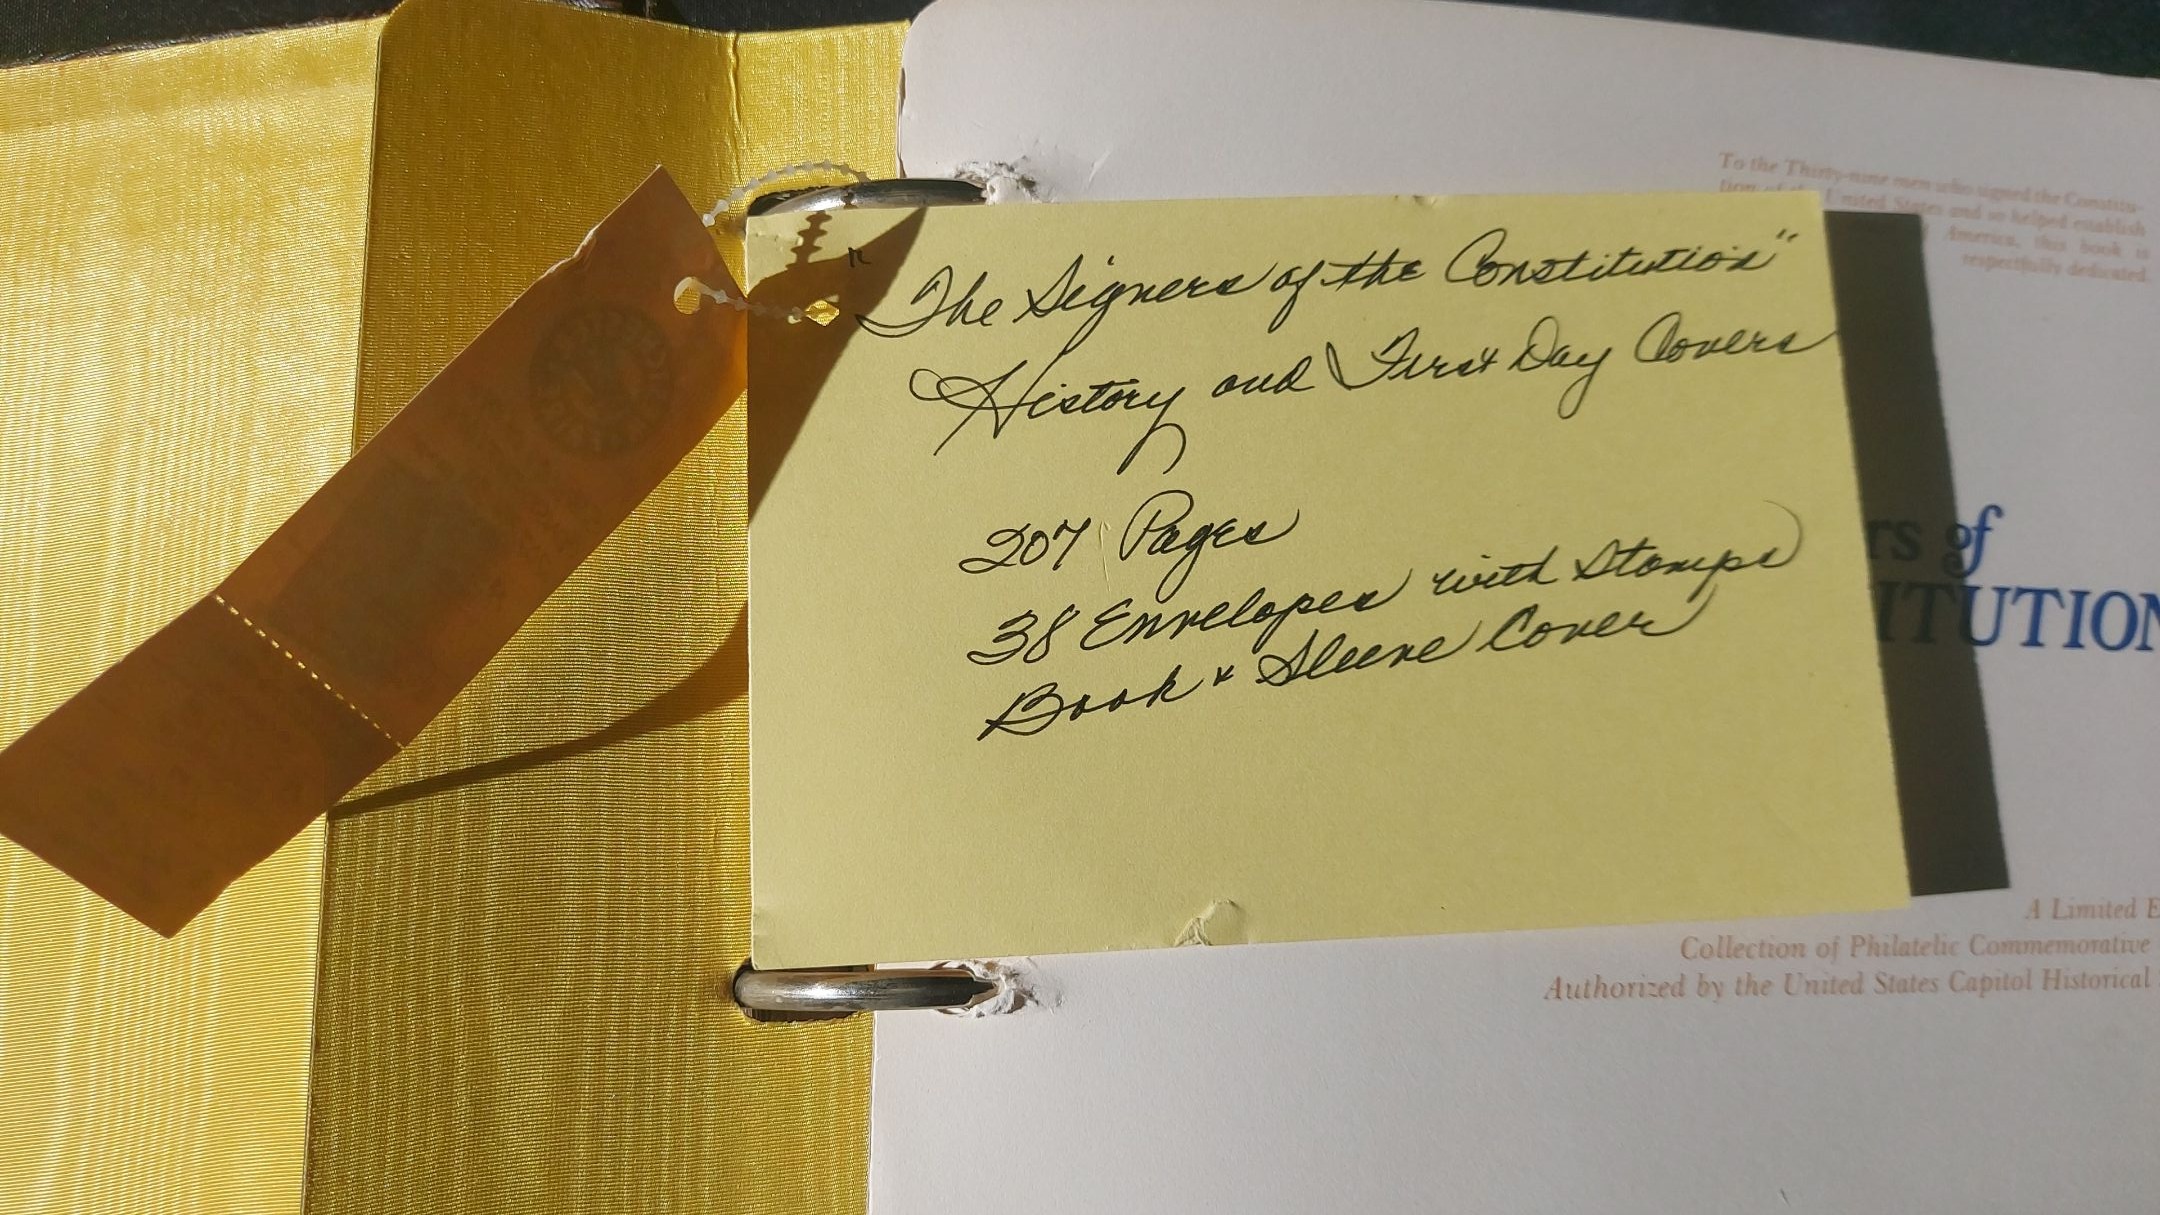 To the Thirty-nine men who signed the Constitu-
tion of the United States and so helped establish
America, this book is
respectfully dedicated.
"The Signers of the Constitution"
History and First Day Covers
207 Pages
38 Envelopes with Stamps
Book & Sleeve Cover
rs of
ITUTION
A Limited E
Collection of Philatelic Commemorative
Authorized by the United States Capitol Historical